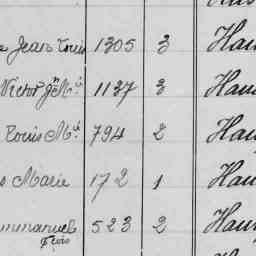 Jean Louis 1305 3 Hau
Victor Jn Mie 1137 3 Hau
Louis Mie 794 2 Hau
s Marie 172 1 Hau
mmanuel 523 2 Hau
Fçois